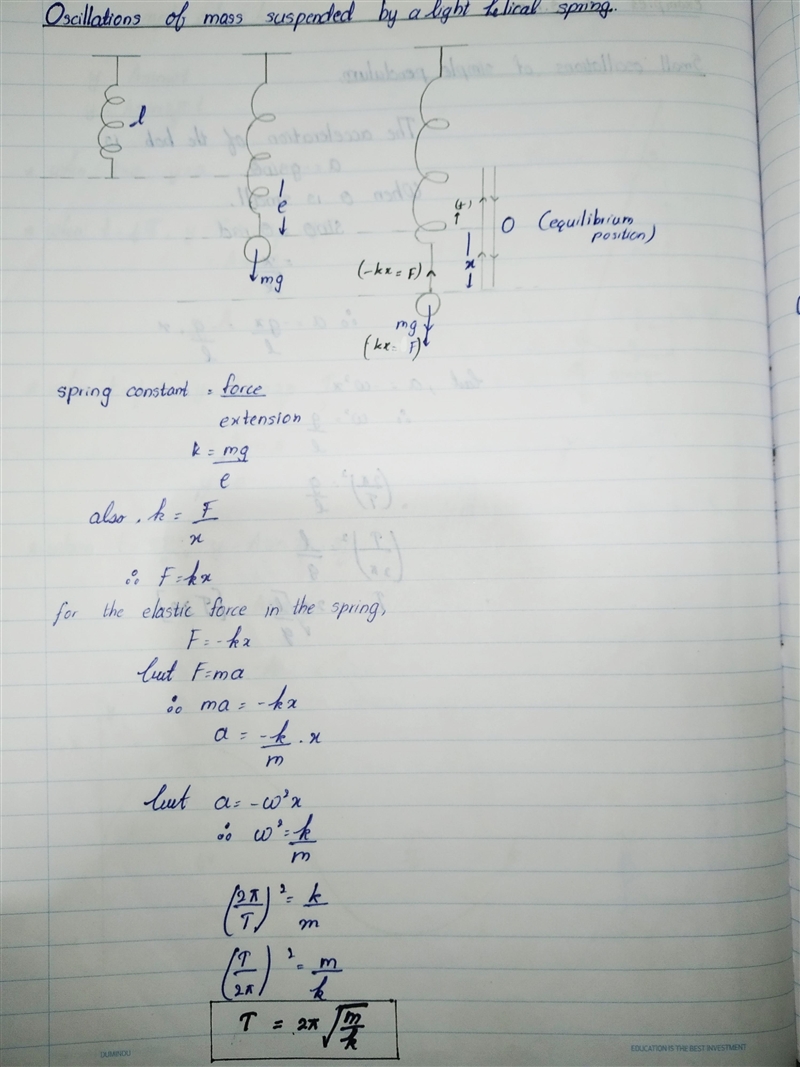 Oscillations of mass suspended by a light helical spring.
l
e
mg
(+)
O (equilibrium
position)
x
(-kx = F)
mg
(kx = F)
spring constant = force
extension
k = mg
e
also, k = F
x
∴ F = kx
for the elastic force in the spring,
F = -kx
but F = ma
∴ ma = -kx
a = -k . x
m
but a = -ω²x
∴ ω² = k
m
(2π/T)² = k/m
(T/2π)² = m/k
T = 2π√(m/k)
DUMINDU
EDUCATION IS THE BEST INVESTMENT